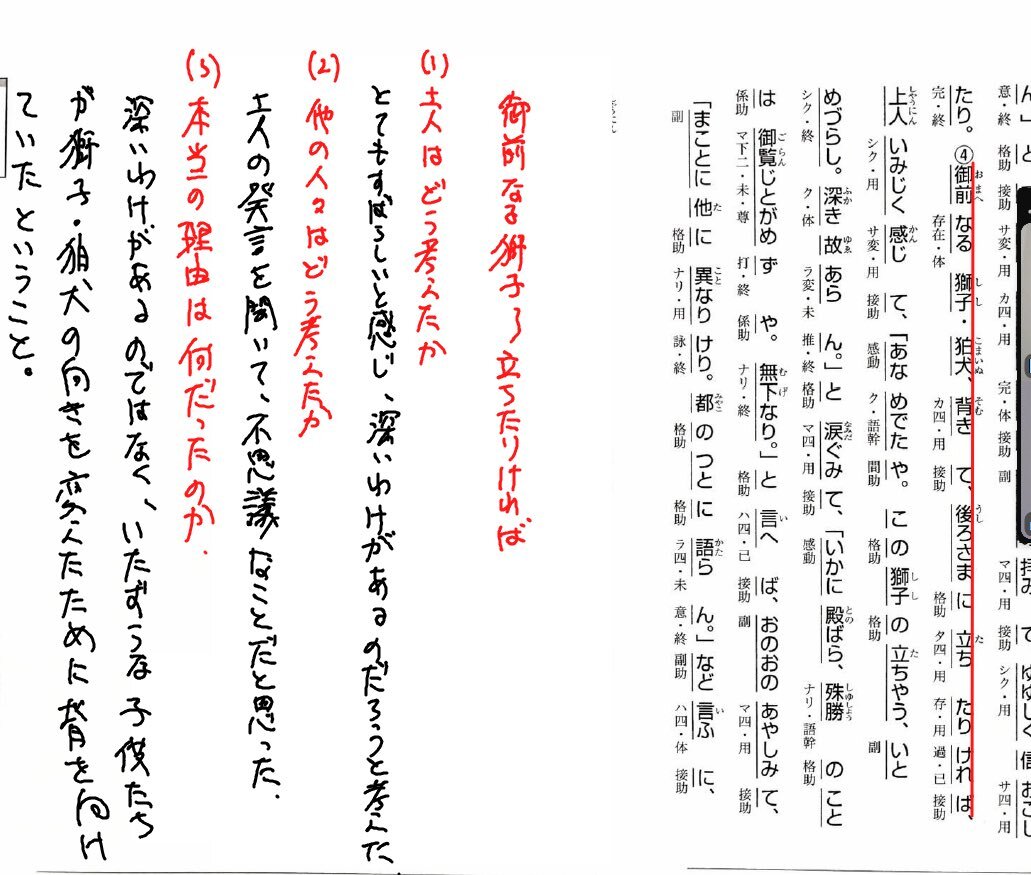 ん」と
意・終 格助 接助 サ変・用 カ四・用 完・体 接助 副 マ四・用 接助 シク・用 サ四・用
たり。④御前なる獅子・狛犬、背きて、後ろさまに立ちたりければ、
おまへ しし こまいぬ そむ うし た
完・終 存在・体 カ四・用 接助 格助 タ四・用 存・用 過・已 接助
上人いみじく感じて、「あなめでたや。この獅子の立ちやう、いと
しやうにん かん しし た
シク・用 サ変・用 接助 感動 ク・語幹 間助 格助 格助 副
めづらし。深き故あらん。」と涙ぐみて、「いかに殿ばら、殊勝のこと
ふか ゆゑ なみだ との しゆしよう
シク・終 ク・体 ラ変・未 推・終 格助 マ四・用 接助 感動 ナリ・語幹 格助
は御覧じとがめずや。無下なり。」と言へば、おのおのあやしみて、
ごらん むげ い
係助 マ下二・未・尊 打・終 係助 ナリ・終 格助 ハ四・已 接助 副 マ四・用 接助
「まことに他に異なりけり。都のつとに語らん。」など言ふに、
た こと みやこ かた い
副 格助 ナリ・用 詠・終 格助 格助 ラ四・未 意・終 副助 ハ四・体 接助
御前なる獅子了立ちたりければ
(1) 上人はどう考えたか
とてもすばらしいと感じ、深いわけがあるのだろうと考えた
(2) 他の人々はどう考えたか
上人の発言を聞いて、不思議なことだと思った。
(3) 本当の理由は何だったのか.
深いわけがあるのではなく、いたずらな子供たち
が獅子・狛犬の向きを変えたために背を向け
ていたということ。